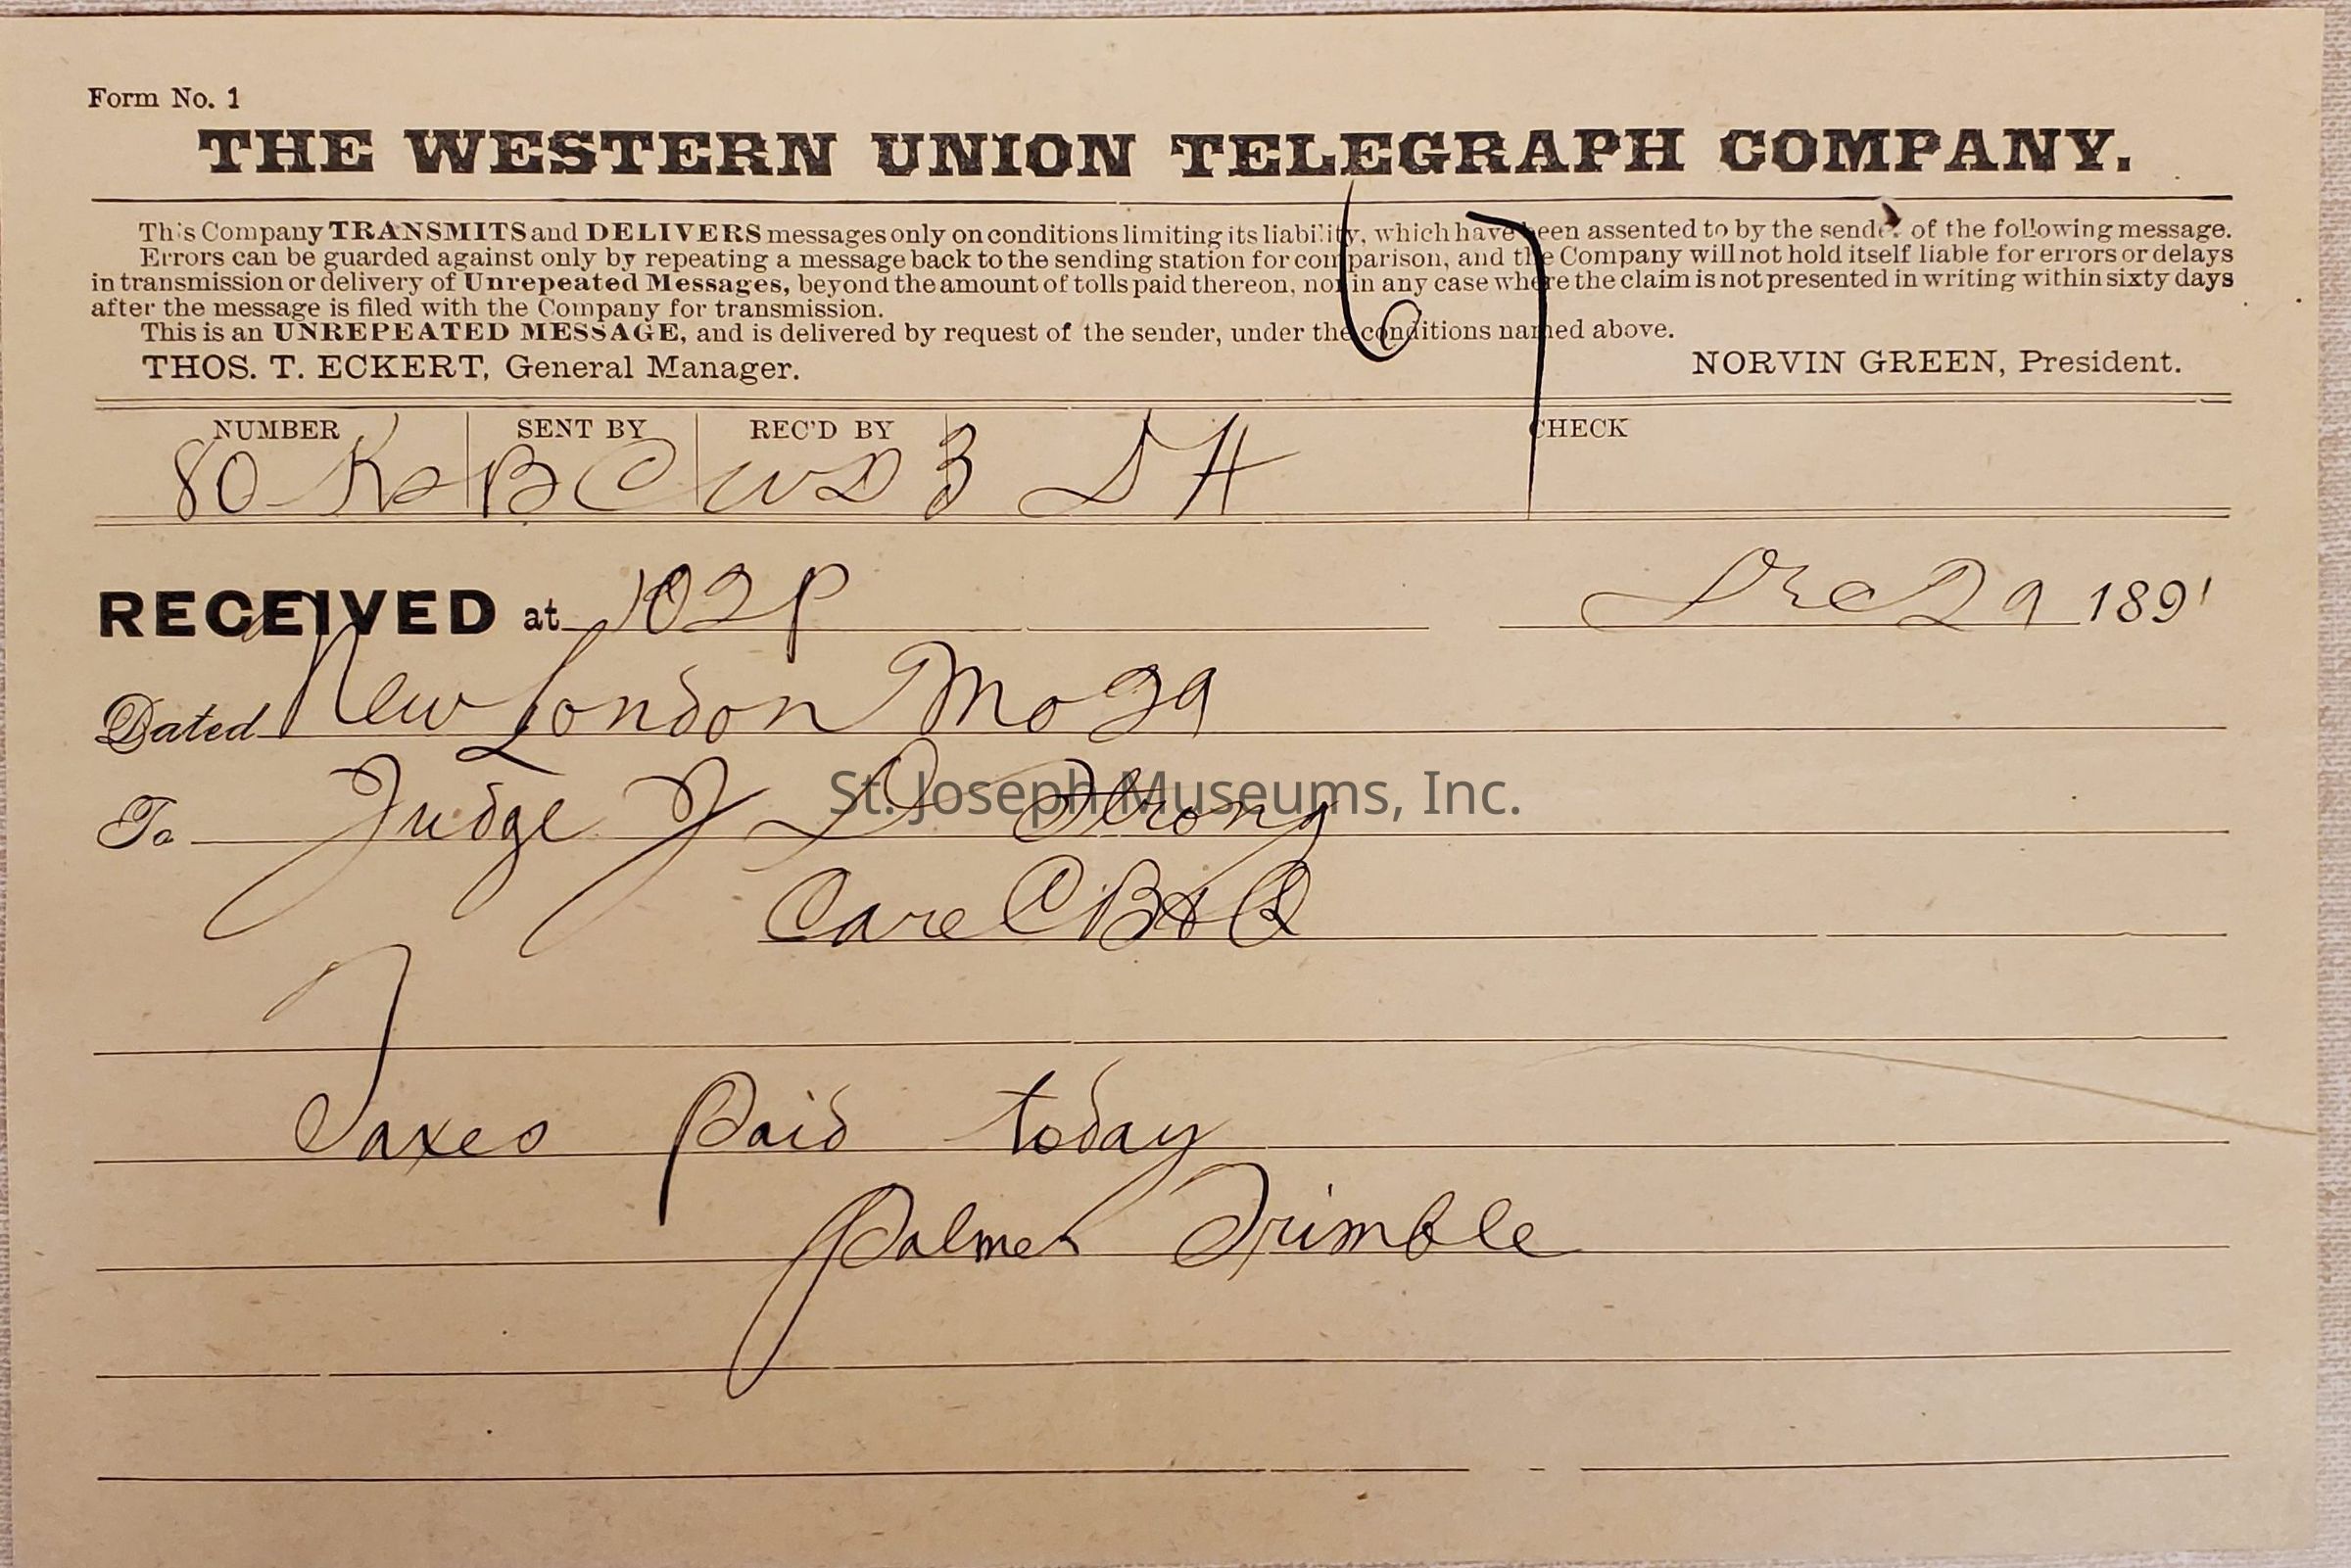 Form No. 1
THE WESTERN UNION TELEGRAPH COMPANY.
This Company TRANSMITS and DELIVERS messages only on conditions limiting its liability, which have been assented to by the sender of the following message.
Errors can be guarded against only by repeating a message back to the sending station for comparison, and the Company will not hold itself liable for errors or delays
in transmission or delivery of Unrepeated Messages, beyond the amount of tolls paid thereon, nor in any case where the claim is not presented in writing within sixty days
after the message is filed with the Company for transmission.
This is an UNREPEATED MESSAGE, and is delivered by request of the sender, under the conditions named above.
THOS. T. ECKERT, General Manager. NORVIN GREEN, President.
NUMBER SENT BY REC'D BY CHECK
80 BC WD 3 DH
RECEIVED at 102P Dec 29 1891
Dated New London Mo 29
To Judge J D Strong
St. Joseph Museums, Inc.
Care CB&Q
Taxes Paid today
Palmer Trimble